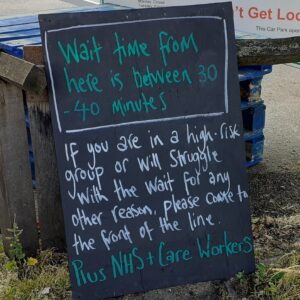 't Get Loc
This Car Park oper
Wait time from
here is between 30
- 40 minutes
If you are in a high-risk
group or will struggle
with the wait for any
other reason, please come to
the front of the line.
Plus NHS + Care Workers